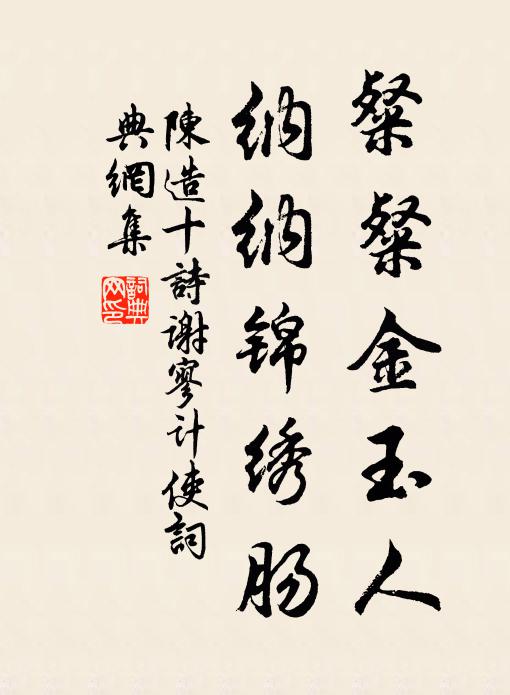 粲粲金玉人
纳纳锦绣肠
陳造十詩谢寥计使詞
典網集
詞典網印